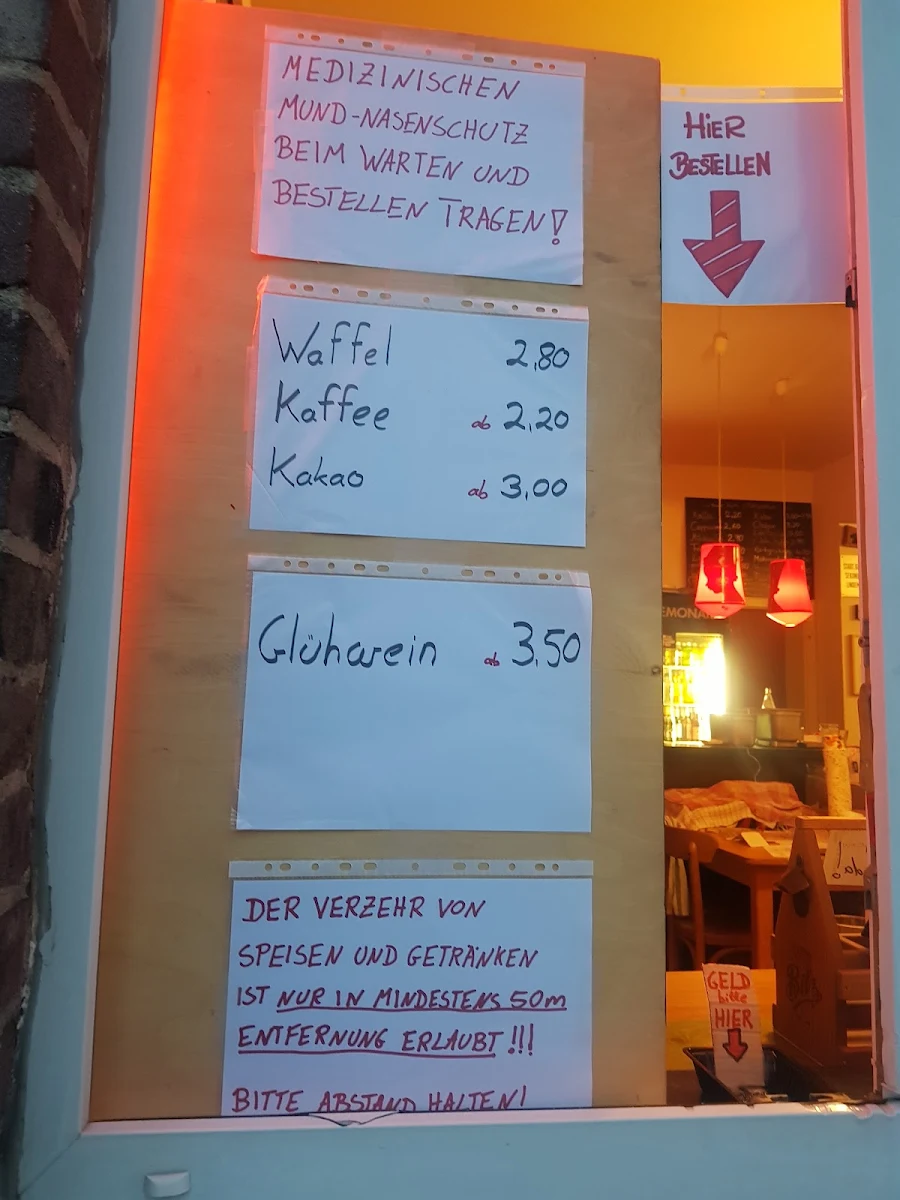 MEDIZINISCHEN
MUND-NASENSCHUTZ
BEIM WARTEN UND
BESTELLEN TRAGEN!
HiER
BESTELLEN
Waffel 2,80
Kaffee ab 2,20
Kakao ab 3,00
Glühwein ab 3,50
DER VERZEHR VON
SPEISEN UND GETRÄNKEN
IST NUR IN MINDESTENS 50m
ENTFERNUNG ERLAUBT!!!
BITTE ABSTAND HALTEN!
GELD
bitte
HIER